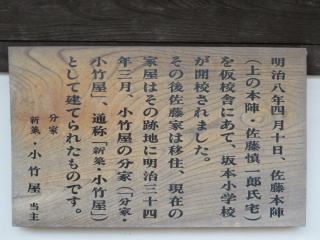 明治八年四月十日、佐藤本陣
(上の本陣・佐藤慎一郎氏宅)
を仮校舎にあて、坂本小学校
が開校されました。
その後佐藤家は移住、現在の
家屋はその跡地に明治三十四
年三月、小竹屋の分家(「分家・
小竹屋」、通称「新築・小竹屋」)
として建てられたものです。
分家
新築・小竹屋 当主